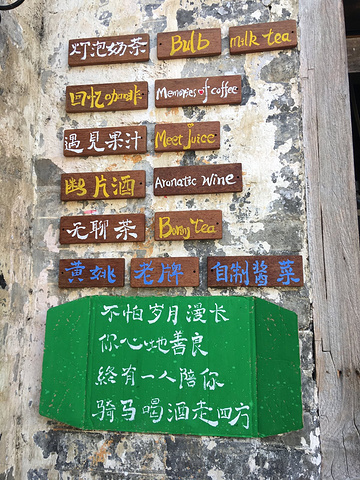 灯泡奶茶 Bulb milk tea
回忆咖啡 Memories of coffee
遇見果汁 Meet juice
断片酒 Aromatic wine
无聊茶 Boring tea
黄姚 老牌 自制酱菜
不怕岁月漫长
你心地善良
终有一人陪你
骑马喝酒走四方